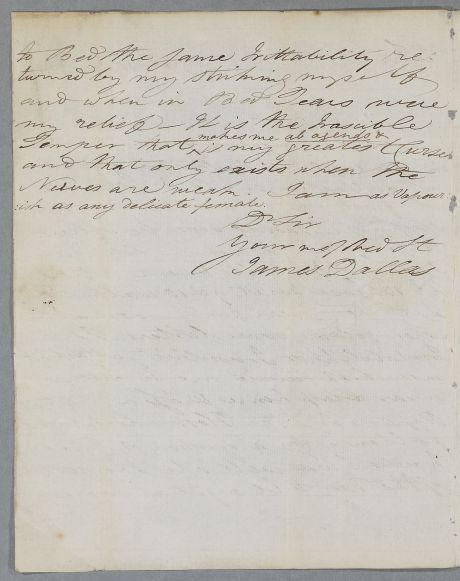 to Bed the same Irittability re-
turned by my striking myself
and when in Bed Tears were
my relief - It is the Irascible
makes me absconds &
Temper that ^ is my greatest Curse
and that only exists when the
Nerves are weak. I am as Vapour
:ish as any delicate female.
Dr Sir
Your most obed St
James Dallas